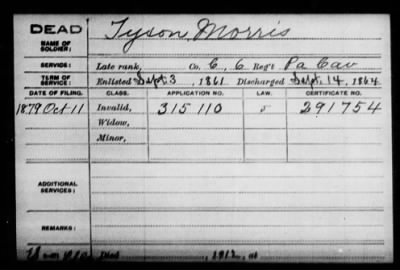 DEAD
NAME OF SOLDIER: Tyson Morris
SERVICE: Late rank, Co. C, 6 Reg't Pa Cav
TERM OF SERVICE: Enlisted Sept. 3, 1861. Discharged Sept. 14, 1864
DATE OF FILING. CLASS. APPLICATION NO. LAW. CERTIFICATE NO.
1879 Oct 11 Invalid, 315 110 291754
Widow,
Minor,
ADDITIONAL SERVICES:
REMARKS:
Died 1912, at